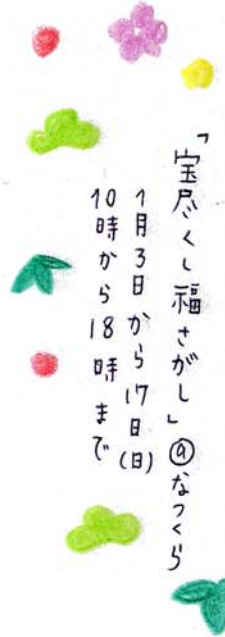 「宝尽くし福さがし」@なつくら
1月3日から17日(日)
10時から18時まで